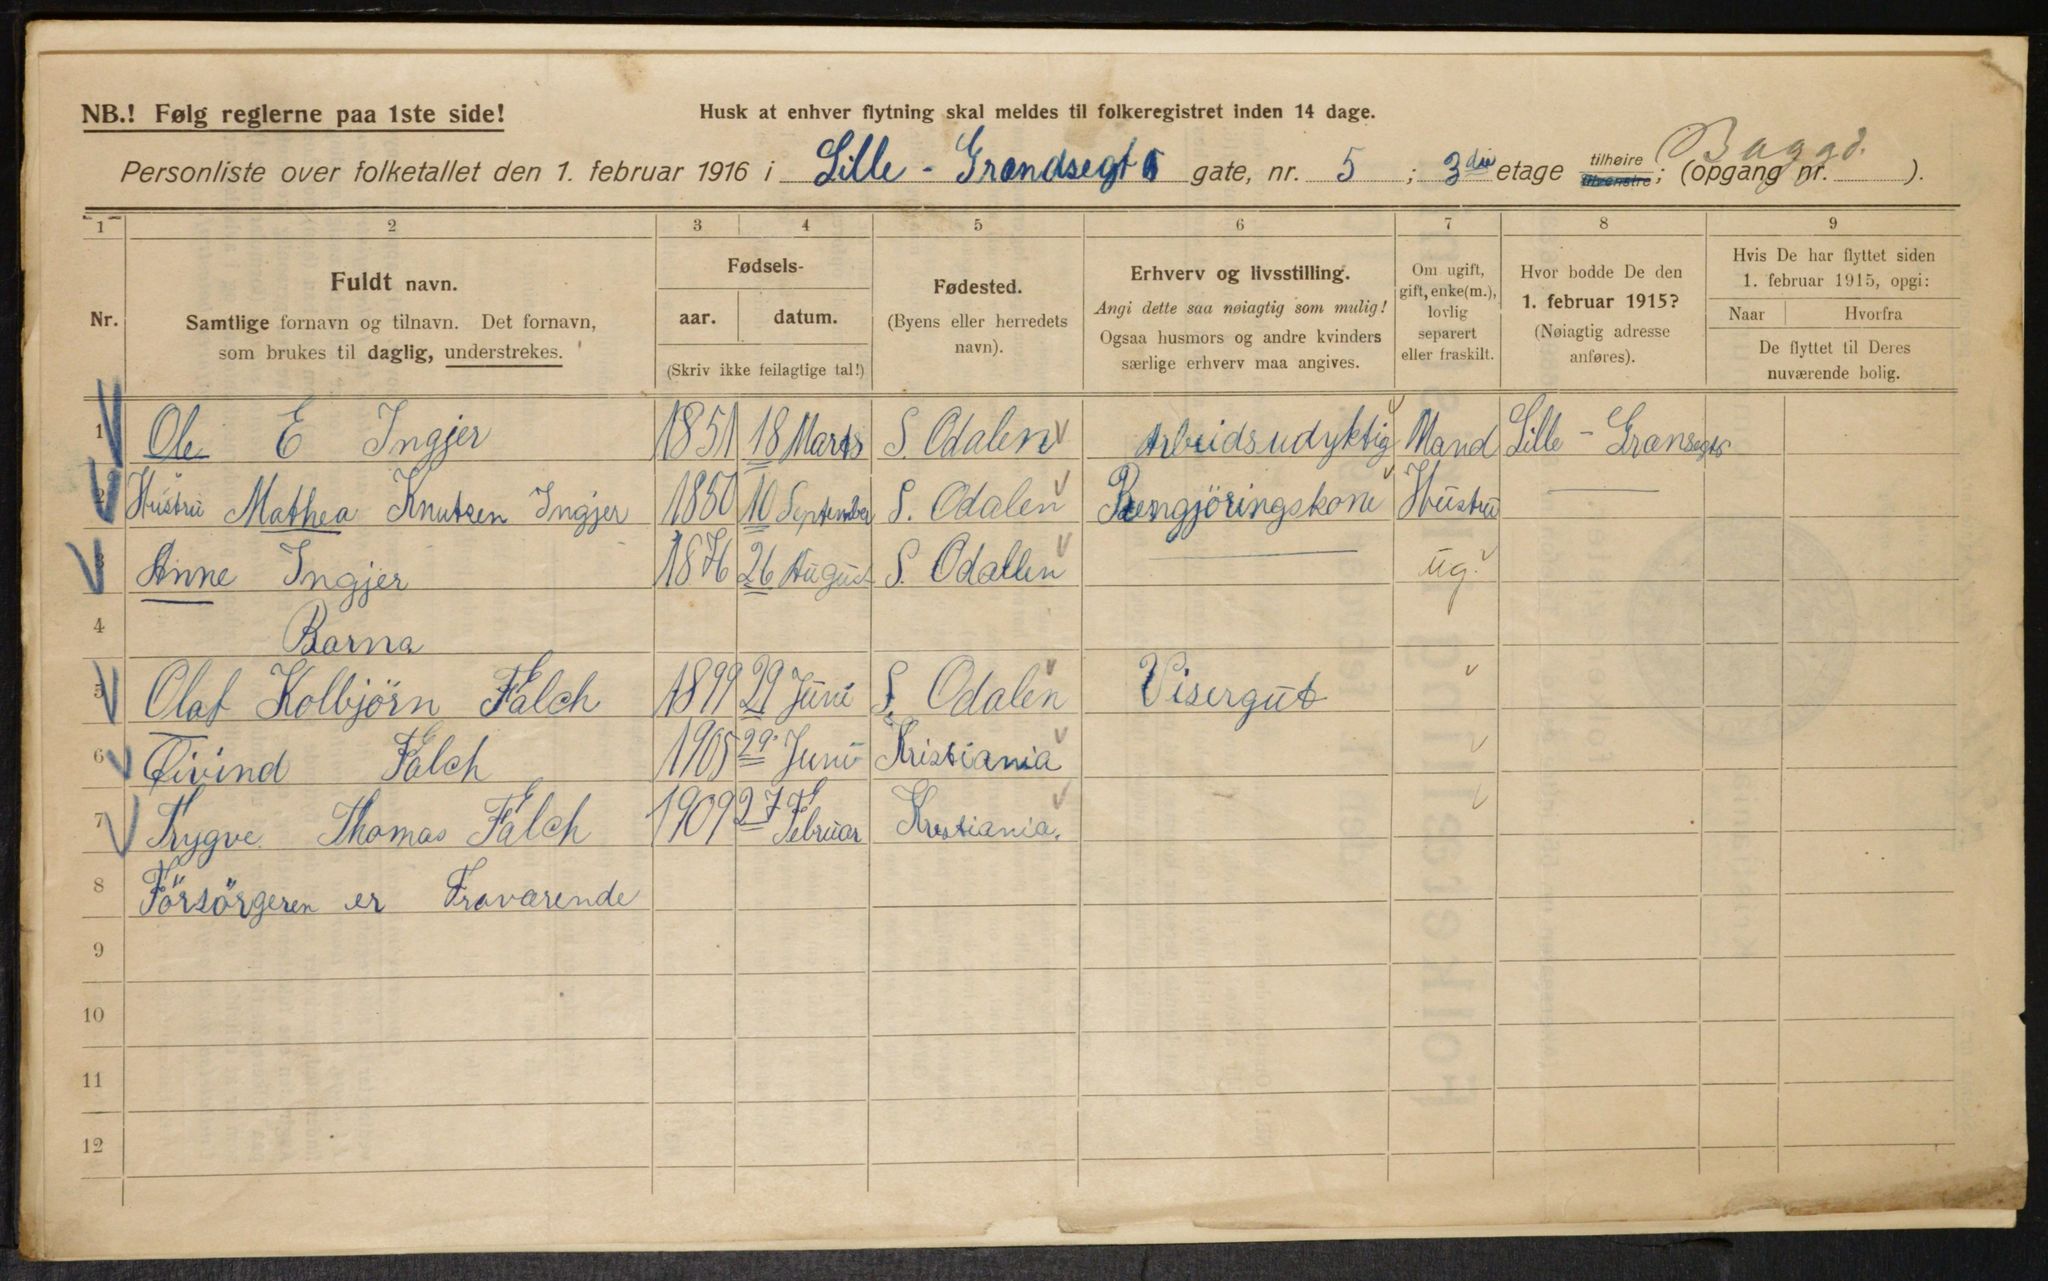 NB.! Følg reglerne paa 1ste side!
Husk at enhver flytning skal meldes til folkeregistret inden 14 dage.
Personliste over folketallet den 1. februar 1916 i Lille-Grændsegt gate, nr. 5; 3die etage tilhøire tilvenstre; (opgang nr. ).
Baggd.
1 2 3 4 5 6 7 8 9
Nr.
Fuldt navn.
Samtlige fornavn og tilnavn. Det fornavn,
som brukes til daglig, understrekes.
Fødsels-
aar. datum.
(Skriv ikke feilagtige tal!)
Fødested.
(Byens eller herredets
navn).
Erhverv og livsstilling.
Angi dette saa nøiagtig som mulig!
Ogsaa husmors og andre kvinders
særlige erhverv maa angives.
Om ugift,
gift, enke(m.),
lovlig
separert
eller fraskilt.
Hvor bodde De den
1. februar 1915?
(Nøiagtig adresse
anføres).
Hvis De har flyttet siden
1. februar 1915, opgi:
Naar Hvorfra
De flyttet til Deres
nuværende bolig.
1 Ole E Ingjer 1851 18 Marts S. Odalen Arbeidsudyktig Mand Lille-Grænsegts
2 Hüstrü Mathea Knutsen Ingjer 1850 10 September S. Odalen Rengjöringskone Hüstru
3 Anne Ingjer 1876 26 August S. Odallen ug.
4 Barna
5 Olaf Kolbjörn Falch 1899 29 Juni S. Odalen Visergut
6 Øivind Falch 1905 29. Juni Kristiania
7 Trygve Thomas Falch 1909 27 Februar Kristiania.
8 Försörgeren er Fraværende
9
10
11
12